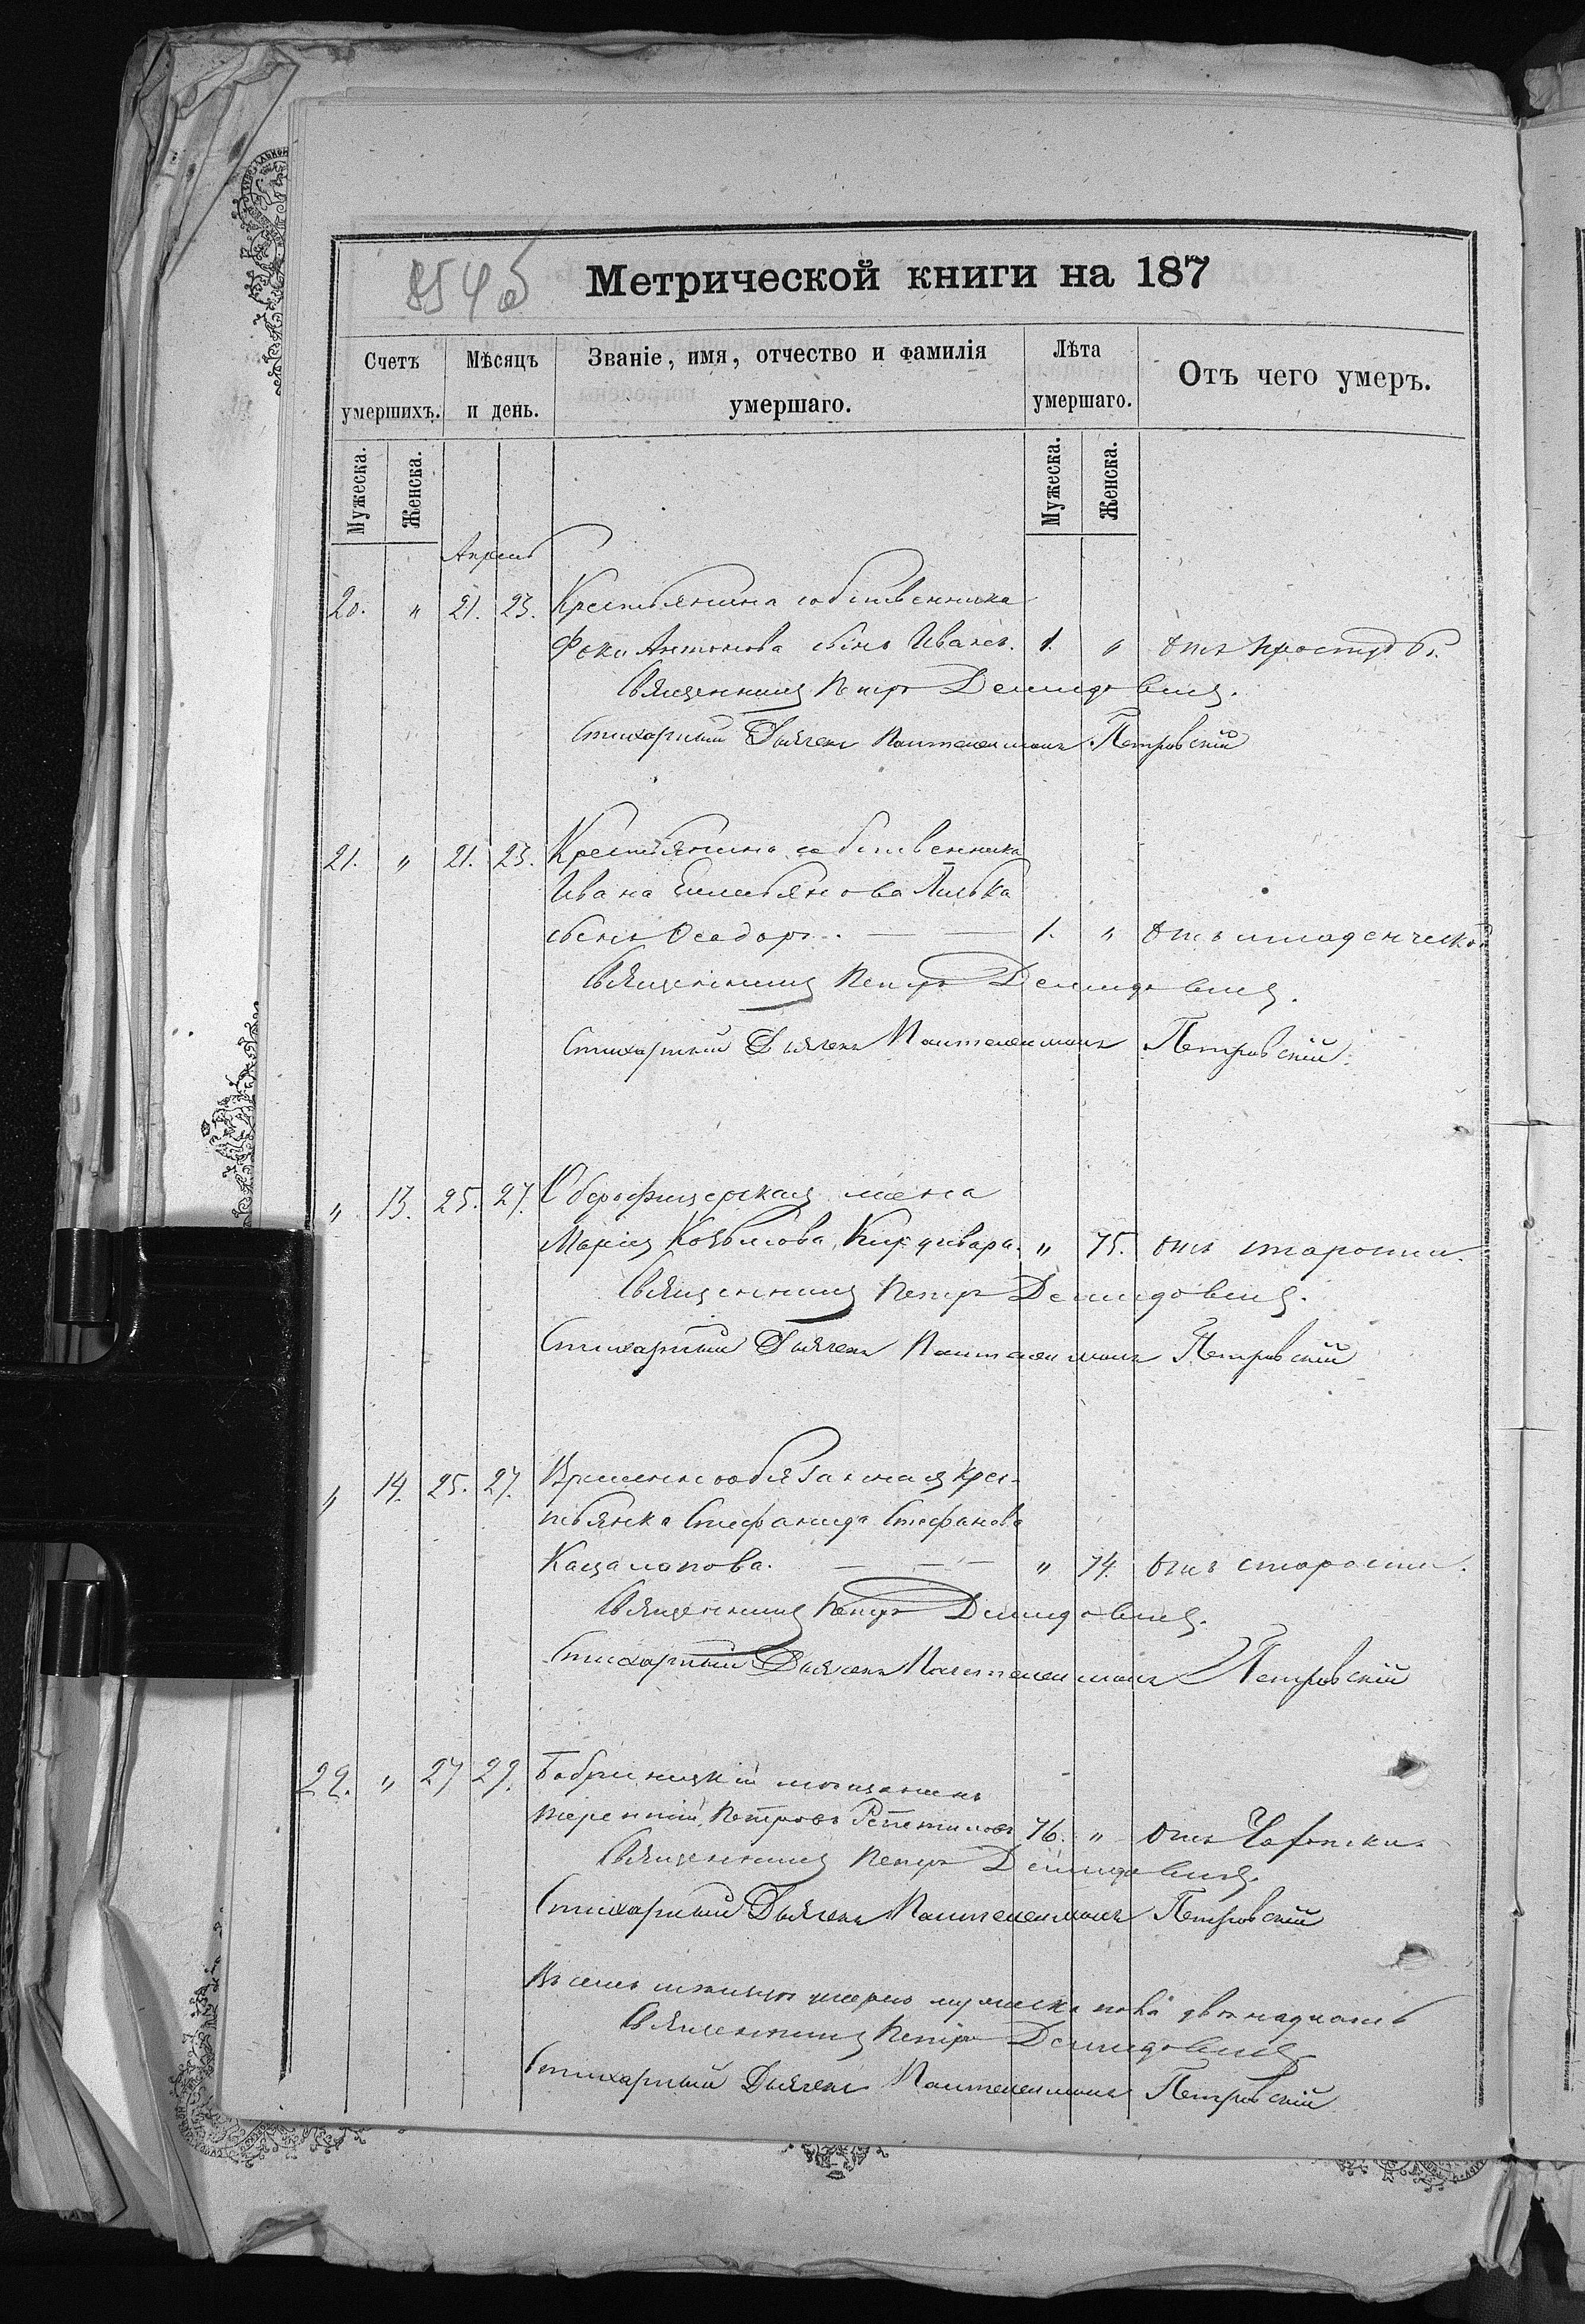 854об
Метрической книги на 187
Счетъ умершихъ.
Мѣсяцъ и день.
Званіе, имя, отчество и фамилія умершаго.
Лѣта умершаго.
Отъ чего умеръ.
Мужеска. Женска. Мужеска. Женска.
Апрель
20. " 21. 23. Крестьянина собственника
Фоки Антонова сынъ Иванъ. 1. " Отъ простуды.
Священникъ Петръ Демидовичъ.
Стихарный Дьячекъ Пантелеимонъ Петровскій
21. " 21. 23. Крестьянина собственника
Ивана Емельянова
сынъ Ѳеодоръ. — — 1. " Отъ младенческой
Священникъ Петръ Демидовичъ.
Стихарный Дьячекъ Пантелеимонъ Петровскій.
" 13. 25. 27. Оберофицерская жена
Марія Козьмова " 75. Отъ старости.
Священникъ Петръ Демидовичъ.
Стихарный Дьячекъ Пантелеимонъ Петровскій
" 14. 25. 27. Временнообязанная крес-
тьянка Стефанида Стефанова
Кацалапова. — — — " 74. Отъ старости.
Священникъ Петръ Демидовичъ.
Стихарный Дьячекъ Пантелеимонъ Петровскій
22. " 27 29. Бобринецкій мѣщанинъ
Терентій Петровъ 76. " Отъ Чахотки
Священникъ Петръ Демидовичъ.
Стихарный Дьячекъ Пантелеимонъ Петровскій
Въ семъ мѣсяцѣ умерло мужеска пола двенадцать
Священникъ Петръ Демидовичъ
Стихарный Дьячекъ Пантелеимонъ Петровскій